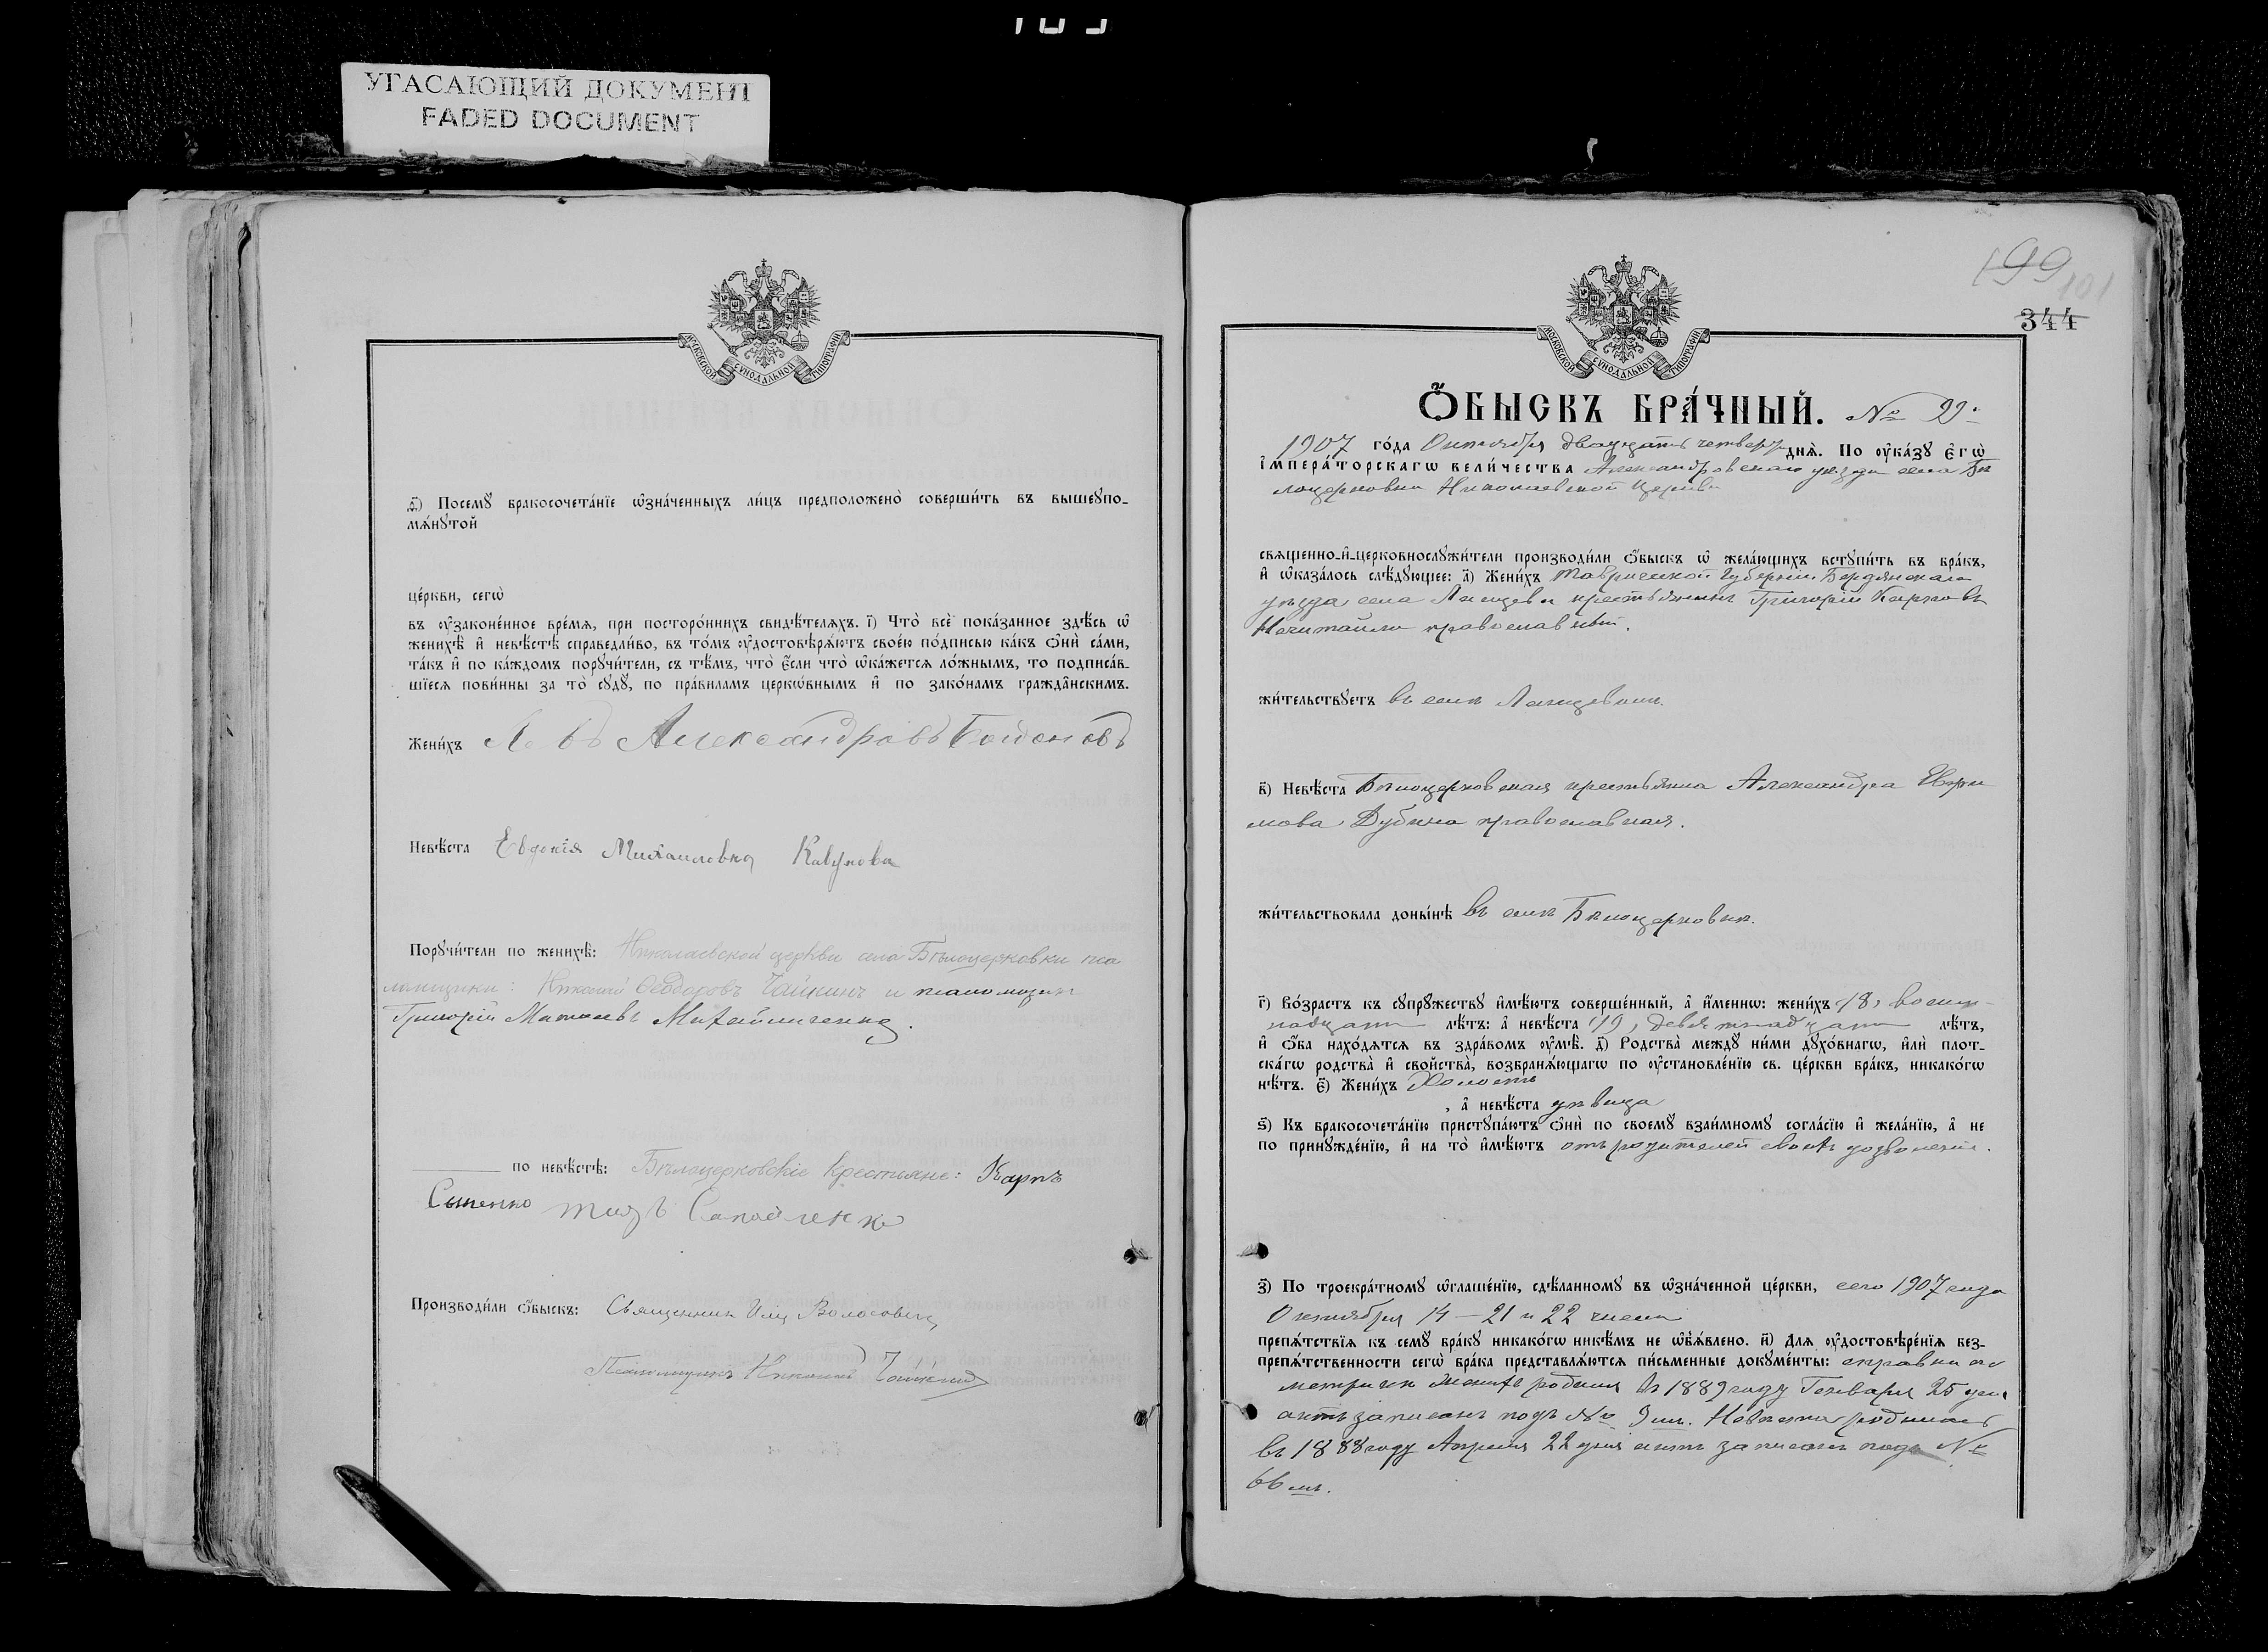 УГАСАЮЩИЙ ДОКУМЕНТ
FADED DOCUMENT
МОСКОВСКОЙ СѴНОДАЛЬНОЙ ТИПОГРАФІИ
ѳ҃) Посемꙋ бракосочета́нїе ѡзна́ченныхъ ли́цъ предположено̀ соверши́ть въ вышеꙋпо-
мѧ́нꙋтой
це́ркви, сегѡ̀
въ ᲂу҆законе́нное вре́мѧ, при посторо́ннихъ свидѣ́телѧхъ. і҃) Что̀ всѐ пока́занное здѣ́сь ѡ҆
женихѣ̀ и҆ невѣ́стѣ справедли́во, въ то́мъ ᲂу҆достовѣрѧ́ютъ свое́ю по́дписью ка́къ ѻ҆нѝ са́ми,
та́къ и҆ по ка́ждомъ порꙋчи́тели, съ тѣ́мъ, что̀ є҆́сли что̀ ѡ҆ка́жетсѧ ло́жнымъ, то подписа́в-
шїесѧ пови́нны за то̀ сꙋдꙋ̀, по пра́виламъ церко́внымъ и҆ по зако́намъ гражда́нскимъ.
Жени́хъ Александровъ
Невѣ́ста Евдокія Михаиловна Кавунова
Порꙋчи́тели по женихѣ̀: Николаевской церкви села Бѣлоцерковки пса
ломщики: Николай Ѳеодоровъ Чайкинъ и псаломщик
Григорій Матвеевъ Михайличенко.
по невѣ́стѣ: Бѣлоцерковскіе Крестьяне: Карпъ
Сыпенко
Производи́ли ѻ҆́быскъ: Священникъ Илія Волосовичъ
Псаломщикъ Николай Чайкинъ
199 101
344
МОСКОВСКОЙ СѴНОДАЛЬНОЙ ТИПОГРАФІИ
Ѻ҆́БЫСКЪ БРА́ЧНЫЙ. № 99.
1907 го́да Октября двадцать четверт днѧ̀. По ᲂу҆ка́зꙋ є҆гѡ̀
і҆мпера́торскагѡ вели́чества Александровскаго уѣзда села Бѣ
лоцерковки Николаевской Церкви
свѧщенно-и҆-церковнослꙋжи́тели производи́ли ѻ҆́быскъ ѡ҆ жела́ющихъ встꙋпи́ть въ бра́къ,
и҆ ѡ҆каза́лось слѣ́дꙋющее: а҃) Жени́хъ Таврической Губерніи Бердянскаго
уѣзда села крестьянинъ Григорій Карповъ
Нечитайло православный.
жи́тельствꙋетъ въ селѣ
в҃) Невѣ́ста Бѣлоцерковская крестьянка Александра Ефи
мова Дубина православная.
жи́тельствовала доны́нѣ въ селѣ Бѣлоцерковкѣ.
г҃) Во́зрастъ къ сꙋпрꙋ́жествꙋ и҆мѣ́ютъ соверше́нный, а҆ и҆́меннѡ: жени́хъ 18, восем-
надцати лѣ́тъ: а҆ невѣ́ста 19, девятнадцати лѣ́тъ,
и҆ ѻ҆́ба нахо́дѧтсѧ въ здра́вомъ ᲂу҆мѣ̀. д҃) Родства̀ междꙋ ни́ми дꙋхо́внагѡ, и҆лѝ плот-
ска́гѡ родства̀ и҆ свойства̀, возбранѧ́ющагѡ по ᲂу҆становле́нїю св. це́ркви бра́къ, никако́гѡ
нѣ́тъ. є҃) Жени́хъ Холостъ
, а҆ невѣ́ста дѣвица
ѕ҃) Къ бракосочета́нїю пристꙋпа́ютъ ѻ҆нѝ по своемꙋ̀ взаи́мномꙋ согла́сїю и҆ жела́нїю, а҆ не
по принꙋжде́нїю, и҆ на то̀ и҆мѣ́ютъ отъ родителей своихъ дозволеніе.
з҃) По троекра́тномꙋ ѡ҆глаше́нїю, сдѣ́ланномꙋ въ ѡ҆зна́ченной це́ркви, сего 1907 года
Октября 14 – 21 и 22 чиселъ
препѧ́тствїѧ къ семꙋ̀ бра́кꙋ никако́гѡ никѣ́мъ не ѡ҆б̾ѧ́влено. и҃) Длѧ ᲂу҆достовѣре́нїѧ без-
препѧ́тственности сегѡ̀ бра́ка представлѧ́ютсѧ пи́сьменные докꙋме́нты: справки по
метрикѣ женихъ родился въ 1889 году Генваря 25 дня
актъ записанъ подъ № 9 мъ. Невѣста родилась
въ 1888 году Апрѣля 22 дня актъ записанъ подъ №
66 мъ.